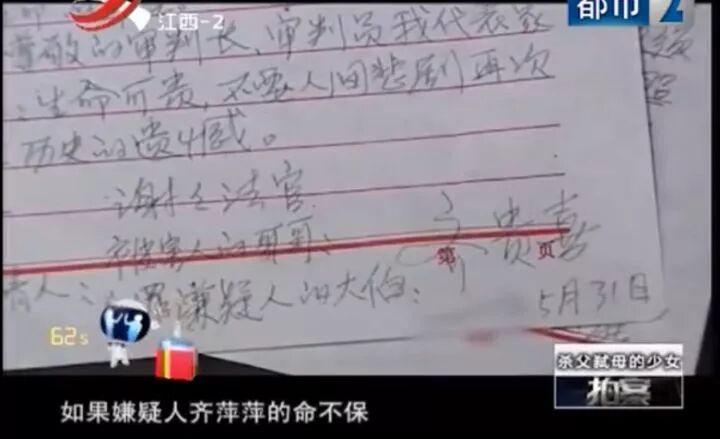 江西-2
都市2
尊敬的审判长、审判员我代表家
生命可贵,不要人间悲剧再次
历史的遗憾。
谢谢法官
被害人的哥哥:
齐贵喜
第 页
嫌疑人的大伯:
5月31日
62s
杀父弑母的少女
拍案
如果嫌疑人齐萍萍的命不保